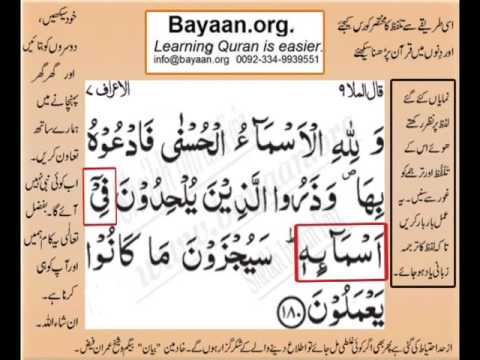 Bayaan.org.
Learning Quran is easier.
info@bayaan.org 0092-334-9939551
اسی طریقے سے تلفظ کا مختصر کورس کیجئے
اور دنوں میں قرآن پڑھنا سیکھئے
خود سیکھیں،
دوسروں کو بتائیں
اور گھر گھر
پہنچانے میں
ہمارے ساتھ
تعاون کریں۔
اب کوئی نبی نہیں
آئے گا۔ بفضل
تعالٰی یہ کام ہمیں
اور آپ کو ہی
کرنا ہے۔
ان شاءاللہ۔
قال الملا ٩
الاعراف ٧
وَلِلّٰهِ الْاَسْمَآءُ الْحُسْنٰى فَادْعُوْهُ
بِهَا ۖ وَذَرُوا الَّذِيْنَ يُلْحِدُوْنَ فِيْٓ
اَسْمَآئِهٖ ؕ سَيُجْزَوْنَ مَا كَانُوْا
يَعْمَلُوْنَ ﴿١٨٠﴾
نمایاں کئے گئے
لفظ پر نظر رکھتے
ھوئے اس کے
تلفظ اور ترجمے کو
غور سے سنیں۔ یہ
عمل بار بار کریں
تاکہ لفظ کا ترجمہ
زبانی یاد ہو جائے۔
از حد احتیاط کی گئی ہے پھر بھی اگر کوئی غلطی مل جائے تو اطلاع دینے والے کے شکر گزار ہوں گے۔ خادمین "بیان" بیگم و شیخ عمران فیض۔